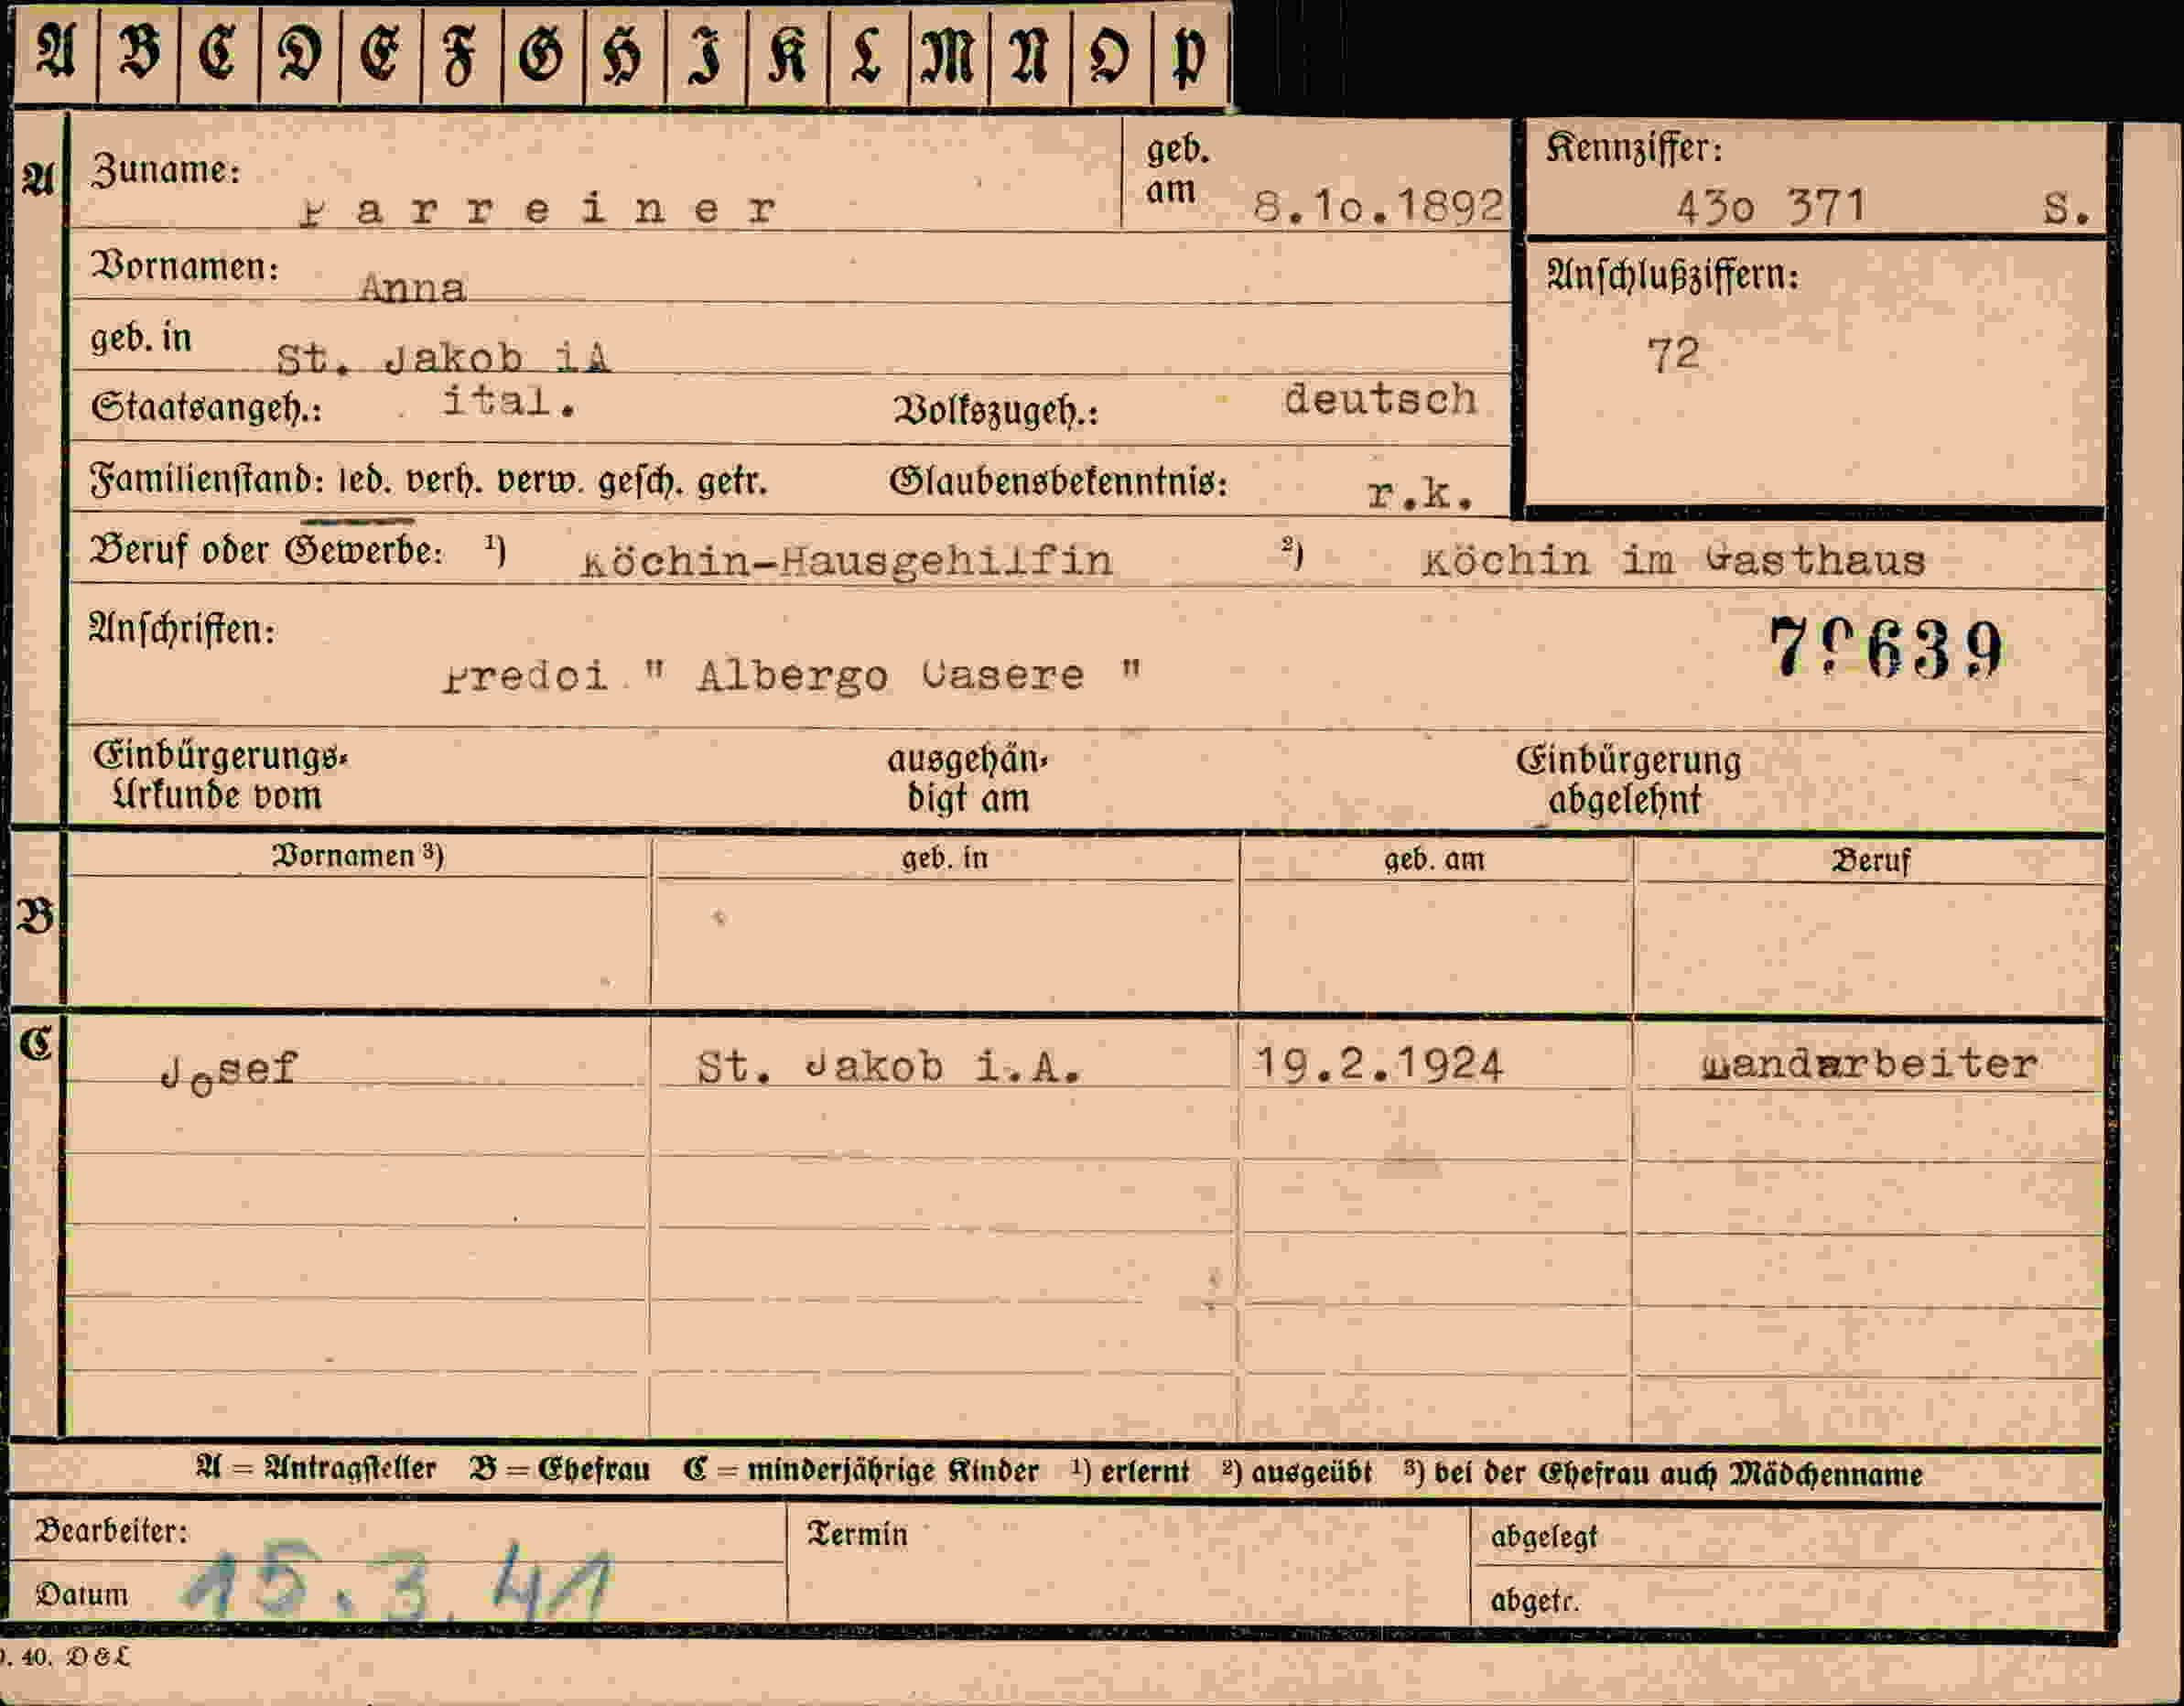 A B C D E F G H I K L M N O P
A Zuname: Parreiner geb. am 8.10.1892 Kennziffer: 43o 371 S.
Vornamen: Anna
Anschlußziffern:
geb. in St. Jakob iA
72
Staatsangeh.: ital. Volkszugeh.: deutsch
Familienstand: led. verh. verw. gesch. getr. Glaubensbekenntnis: r.k.
Beruf oder Gewerbe: ¹) Köchin-Hausgehilfin ²) Köchin im Gasthaus
Anschriften:
Predoi " Albergo Casere "
Einbürgerungs-
Urkunde vom
ausgehän-
digt am
Einbürgerung
abgelehnt
Vornamen ³) geb. in geb. am Beruf
B
C Josef St. Jakob i.A. 19.2.1924 Landarbeiter
A = Antragsteller B = Ehefrau C = minderjährige Kinder ¹) erlernt ²) ausgeübt ³) bei der Ehefrau auch Mädchenname
Bearbeiter: Termin abgelegt
Datum 15.3.41 abgetr.
40. D & L